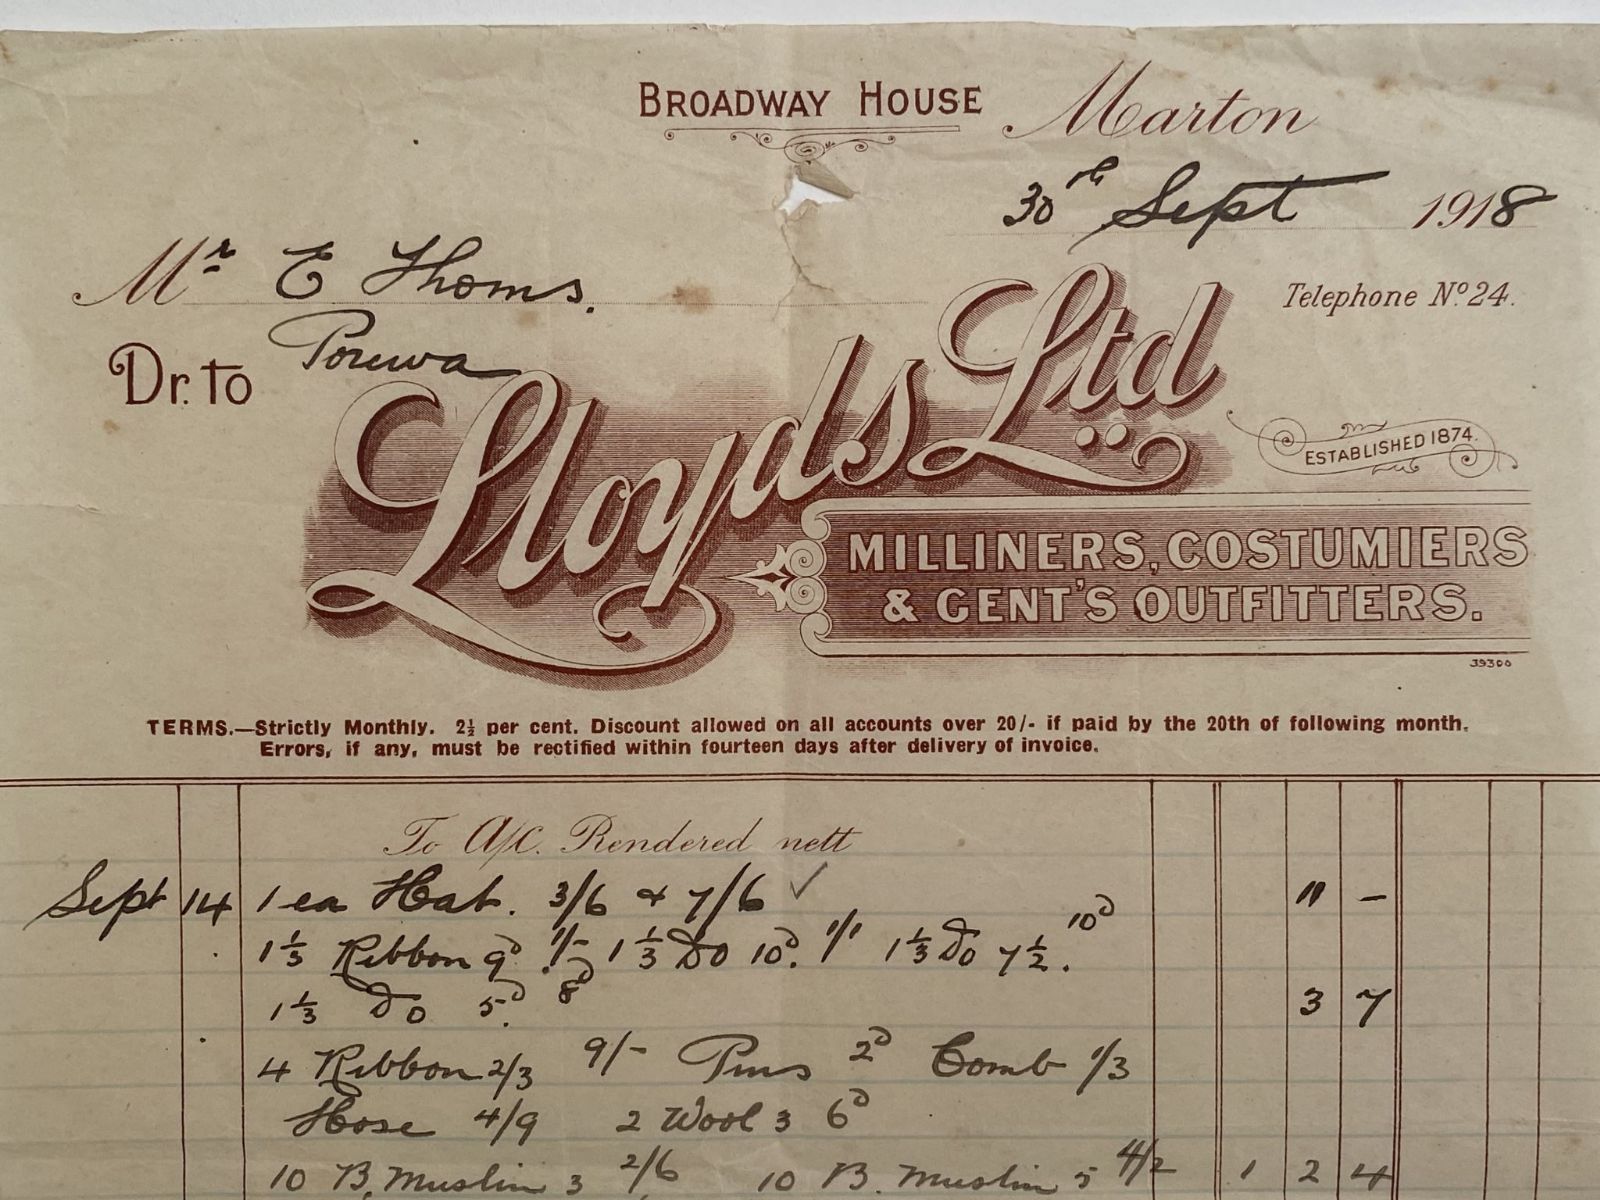 BROADWAY HOUSE Marton
30th Sept 1918
Mr E Thoms.
Telephone No. 24.
Porewa
Dr. to
Lloyds Ltd
ESTABLISHED 1874.
MILLINERS, COSTUMIERS
& GENT'S OUTFITTERS.
39300
TERMS.—Strictly Monthly. 2½ per cent. Discount allowed on all accounts over 20/- if paid by the 20th of following month.
Errors, if any, must be rectified within fourteen days after delivery of invoice.
To A/C. Rendered nett
Sept 14 1 ea Hat. 3/6 & 7/6 ✓ 11 -
1⅓ Ribbon 9d. 1/- 1⅓ Do 10d. 1/1 1⅓ Do 7½. 10d
1⅓ Do 5d. 8d 3 7
4 Ribbon 2/3 9/- Pins 2d Comb 1/3
Hose 4/9 2 Wool 3 6d
10 B. Muslin 3 2/6 10 B. Muslin 5 4/2 1 2 4